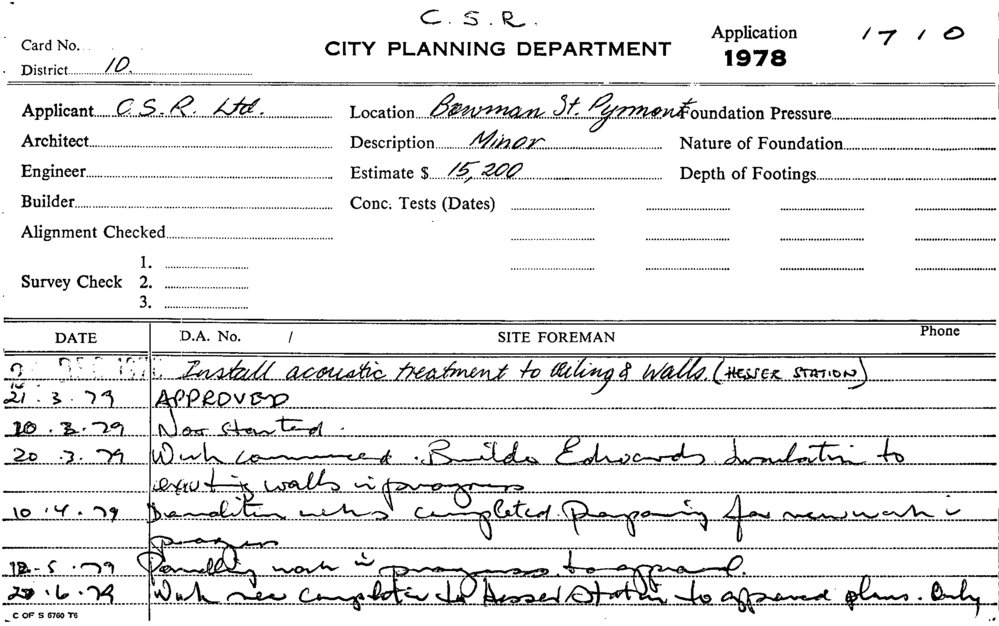 C. S. R.
Card No.
CITY PLANNING DEPARTMENT
Application 1710
1978
District 10.
Applicant C.S.R. Ltd. Location Bowman St. Pyrmont Foundation Pressure
Architect Description Minor Nature of Foundation
Engineer Estimate $ 15,200 Depth of Footings
Builder Conc. Tests (Dates)
Alignment Checked
Survey Check 1.
2.
3.
DATE D.A. No. / SITE FOREMAN Phone
DEC Install acoustic treatment to Ceiling & Walls. (HESSER STATION)
21.3.79 APPROVED
.3.79 Not started.
20.3.79 Work commenced. Builder Edwards Insulation to
existing walls in progress
10.4.79 Demolition completed. Preparing for new work in
progress
.5.79 Panelling work in progress to approval.
.6.79 Work near completion to Hesser Station to approved plans. Only
C OF S 6760 T6